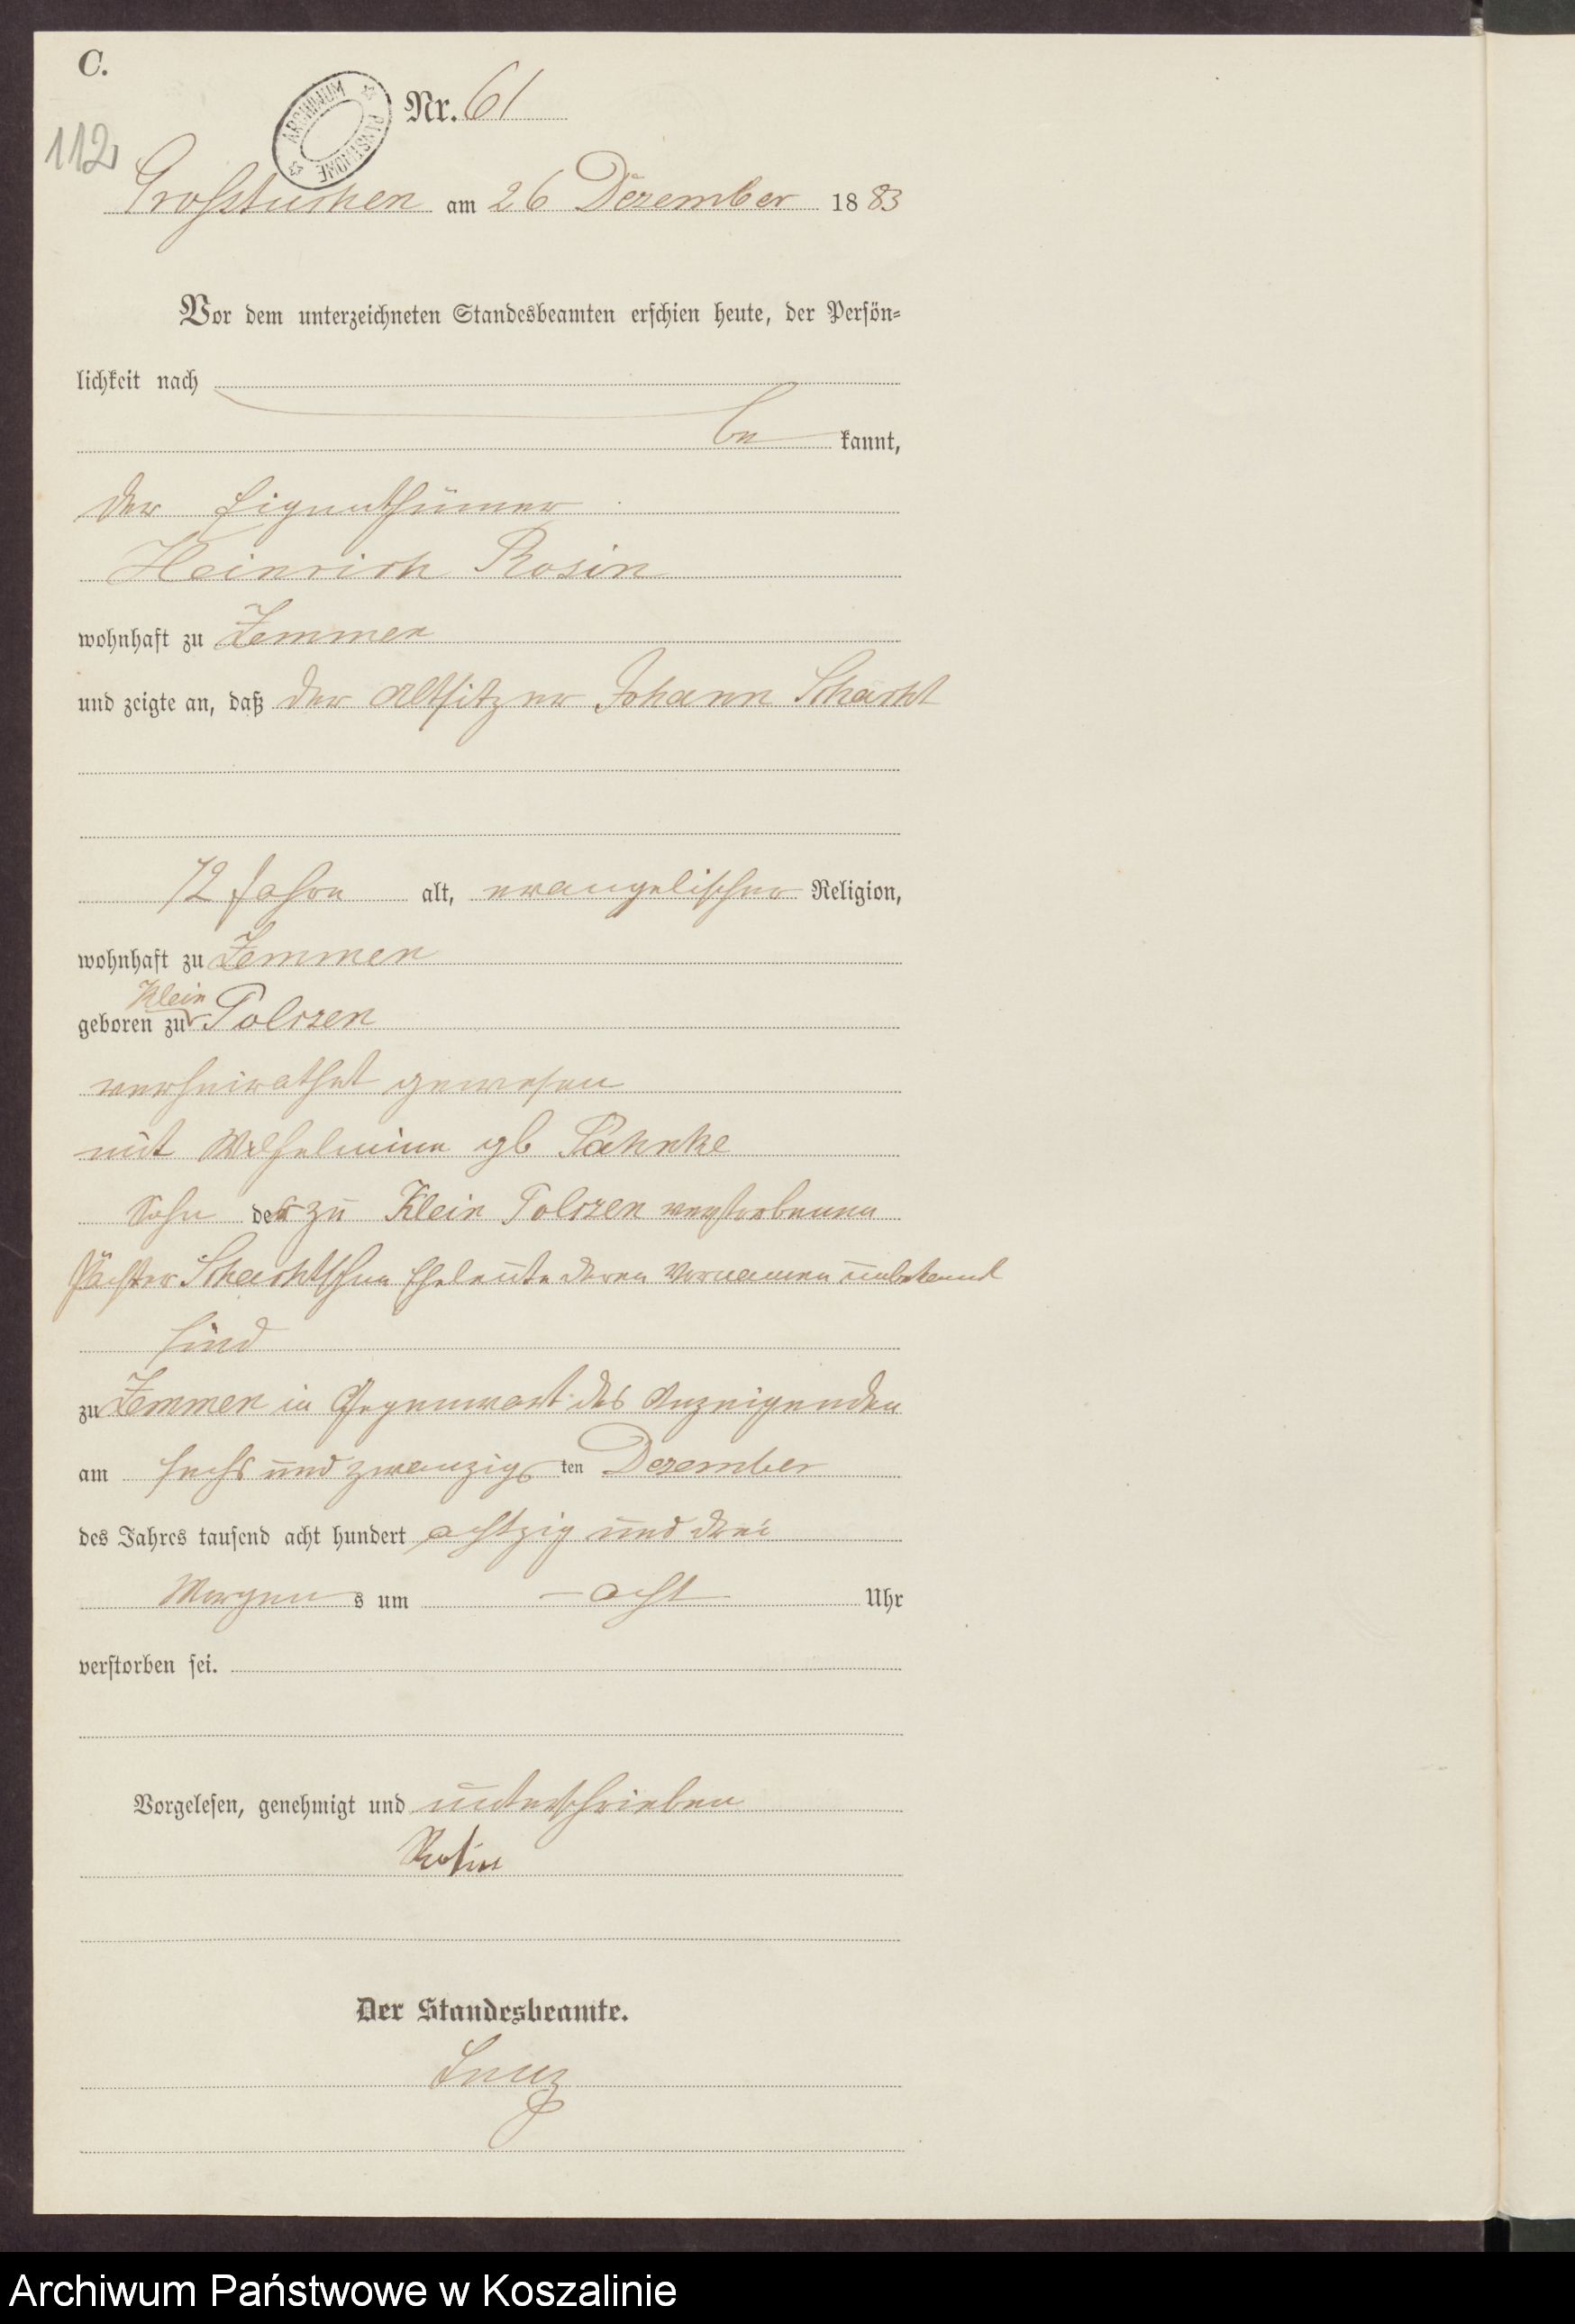 C.
Nr. 61
112
ARCHIWUM PAŃSTWOWE
Großtuchen am 26 Dezember 1883
Vor dem unterzeichneten Standesbeamten erschien heute, der Persön-
lichkeit nach
be kannt,
der Eigenthümer
Heinrich Rosin
wohnhaft zu Zemmen
und zeigte an, daß der Altsitzer Johann Schacht
72 Jahre alt, evangelischer Religion,
wohnhaft zu Zemmen
Klein
geboren zu Polczen
verheirathet gewesen
mit Wilhelmine gb Pahnke
Sohn der zu Klein Polczen verstorbenen
Pächter Schachtschen Eheleute deren Vornamen unbekannt
sind
zu Zemmen in Gegenwart des Anzeigenden
am sechs und zwanzigsten Dezember
des Jahres tausend acht hundert achtzig und drei
Morgens um – acht Uhr
verstorben sei.
Vorgelesen, genehmigt und unterschrieben
Rosin
Der Standesbeamte.
Archiwum Państwowe w Koszalinie